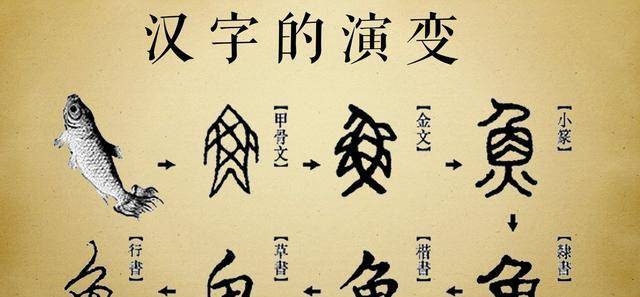 汉字的演变
【甲骨文】
【金文】
【小篆】
魚
【隸書】
【楷書】
【草書】
【行書】